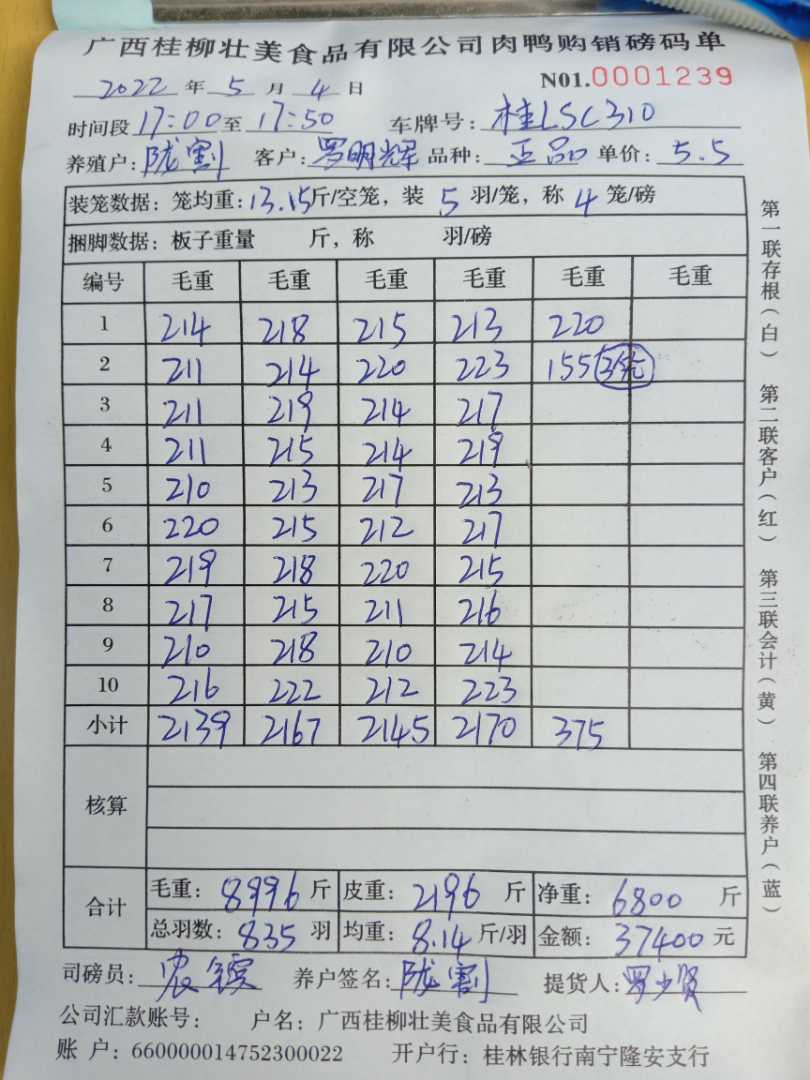 广西桂柳壮美食品有限公司肉鸭购销磅码单
2022 年 5 月 4 日 N01.0001239
时间段 17:00 至 17:50 车牌号: 桂LSC310
养殖户: 陇割 客户: 罗明辉 品种: 正品 单价: 5.5
装笼数据: 笼均重: 13.15 斤/空笼, 装 5 羽/笼, 称 4 笼/磅
捆脚数据: 板子重量 斤, 称 羽/磅
编号 毛重 毛重 毛重 毛重 毛重 毛重
1 214 218 215 213 220
2 211 214 220 223 155 3笼
3 211 219 214 217
4 211 215 214 219
5 210 213 217 213
6 220 215 212 217
7 219 218 220 215
8 217 215 211 216
9 210 218 210 214
10 216 222 212 223
小计 2139 2167 2145 2170 375
核算
合计 毛重: 8996 斤 皮重: 2196 斤 净重: 6800 斤
总羽数: 835 羽 均重: 8.14 斤/羽 金额: 37400 元
司磅员: 农 养户签名: 陇割 提货人: 罗少贤
公司汇款账号: 户名: 广西桂柳壮美食品有限公司
账 户: 660000014752300022 开户行: 桂林银行南宁隆安支行
第一联存根(白) 第二联客户(红) 第三联会计(黄) 第四联养户(蓝)